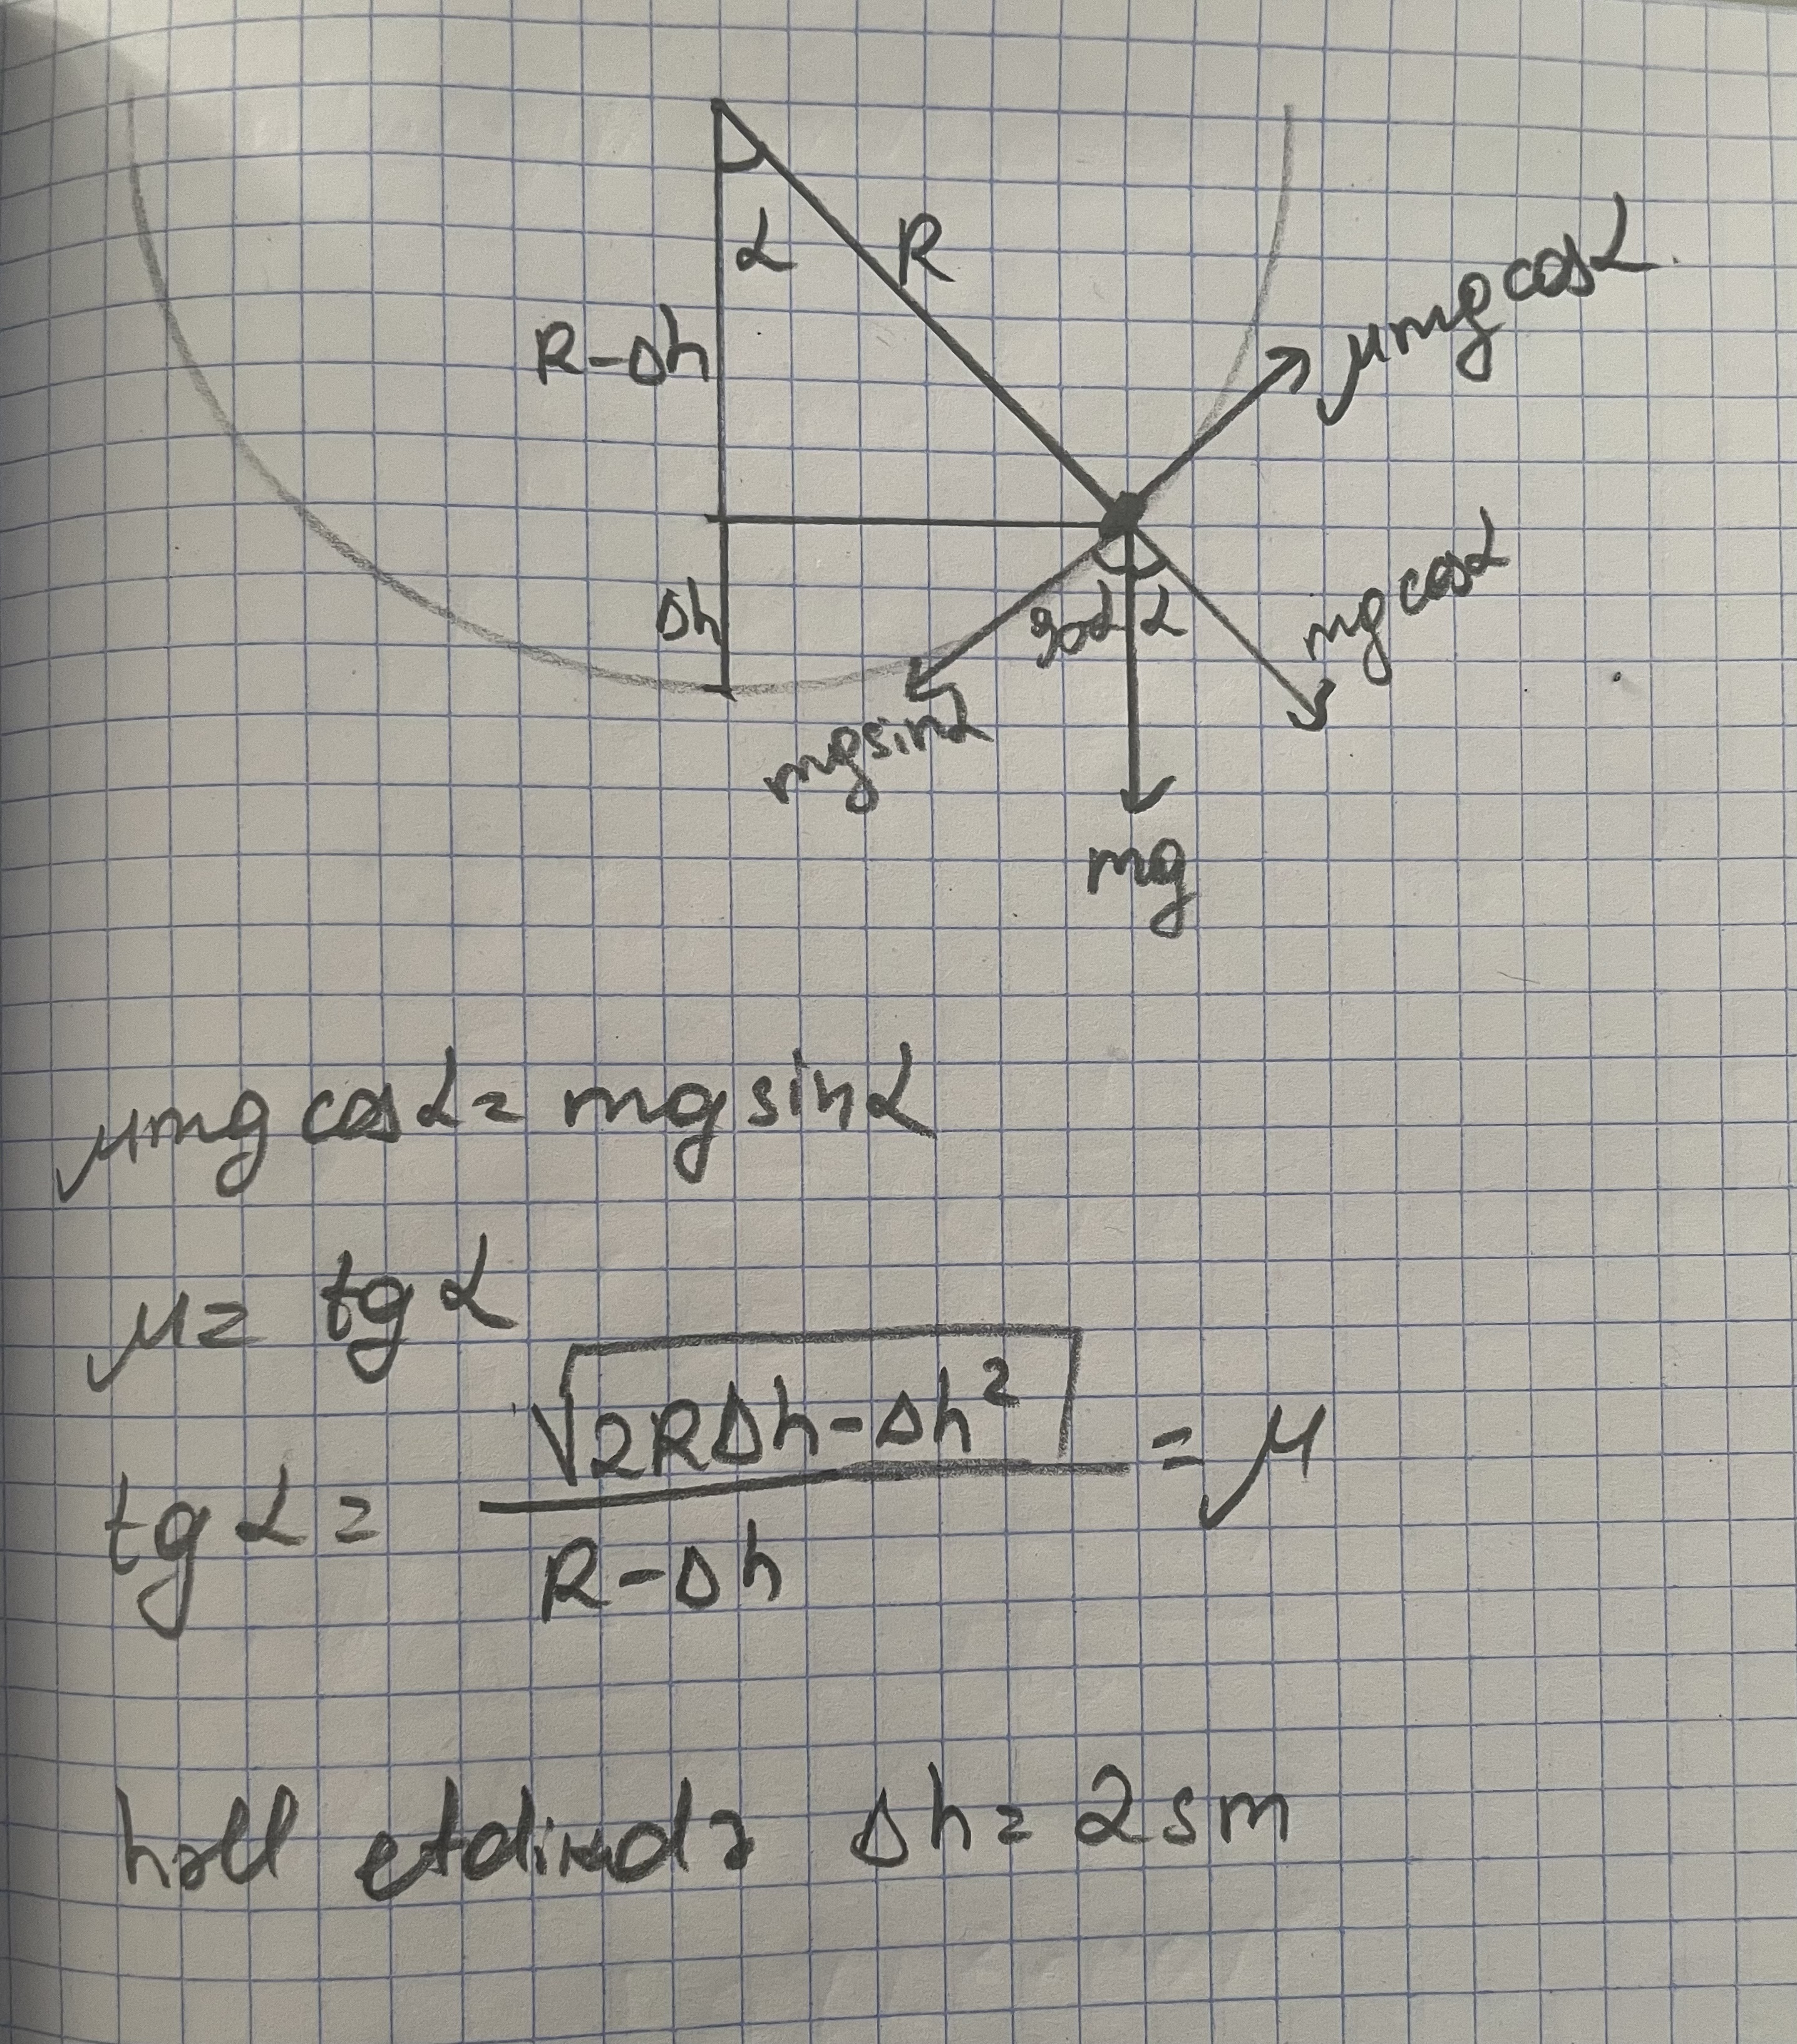 α
R
R-Δh
μmgcosα.
Δh
90-α
α
mgcosα
mgsinα
mg
μmgcosα = mgsinα
μ = tgα
tgα = √(2RΔh-Δh²) / (R-Δh) = μ
həll etdikdə Δh = 2sm